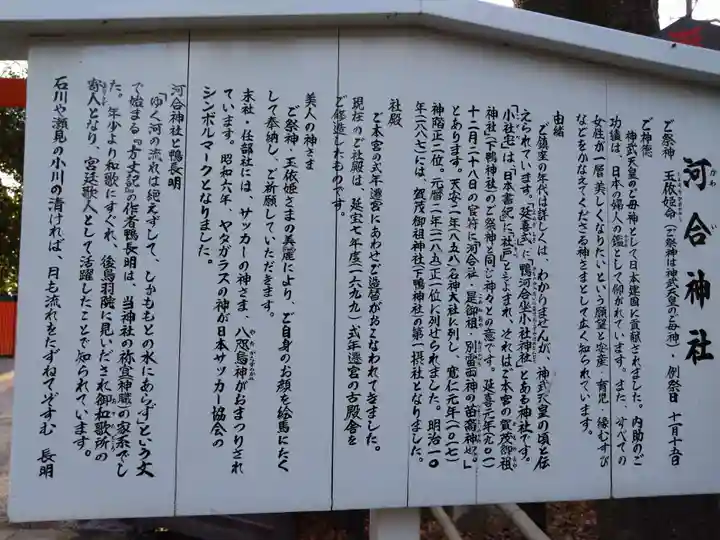 河合神社
かわあいじんじゃ
ご祭神 玉依姫命(ご祭神は神武天皇のご母神)・例祭日 十一月十五日
ご神徳
神武天皇のご母神として日本建国に貢献されました。内助のご
功績は、日本の婦人の鑑として仰がれています。また、すべての
女性が一層美しくなりたいという願望と安産・育児・縁むすび
などをかなえてくださる神さまとして広く知られています。
由緒
ご鎮座の年代は詳しくは、わかりませんが、神武天皇の頃と伝
えられています。延喜式に「鴨河合坐小社神社」とある神社です。
「小社宅」は、「日本書紀」に「社戸」とよまれ、それはご本宮の賀茂御祖
神社(下鴨神社)のご祭神と同じ神々との意です。延喜元年(九〇一)
十二月二十八日の官符に「河合社・是御祖・別雷両神の苗裔神也。」
とあります。天安二年(八五八)名神大社に列し、寛仁元年(一〇一七)
神階正二位。元暦二年(一一八五)正一位に列せられました。明治一〇
年(一八八七)には、賀茂御祖神社(下鴨神社)の第一摂社となりました。
社殿
ご本宮の式年遷宮にあわせご造替がおこなわれてきました。
現在のご社殿は、延宝七年度(一六七九)式年遷宮の古殿舎を
ご修造したものです。
美人の神さま
ご祭神、玉依姫さまの美麗により、ご自身のお顔を絵馬にたく
して奉納し、ご祈願していただきます。
末社・任部社には、サッカーの神さま、八咫烏神がおまつりされ
ています。昭和六年、ヤタガラスの神が日本サッカー協会の
シンボルマークとなりました。
河合神社と鴨長明
「ゆく河の流れは絶えずして、しかももとの水にあらず」という文
で始まる『方丈記』の作者鴨長明は、当神社の祢宜神職の家系でし
た。年少より和歌にすぐれ、後鳥羽院に見いだされ御和歌所の
寄人となり、宮廷歌人として活躍したことで知られています。
石川や瀬見の小川の清ければ、月も流れをたずねてぞすむ 長明